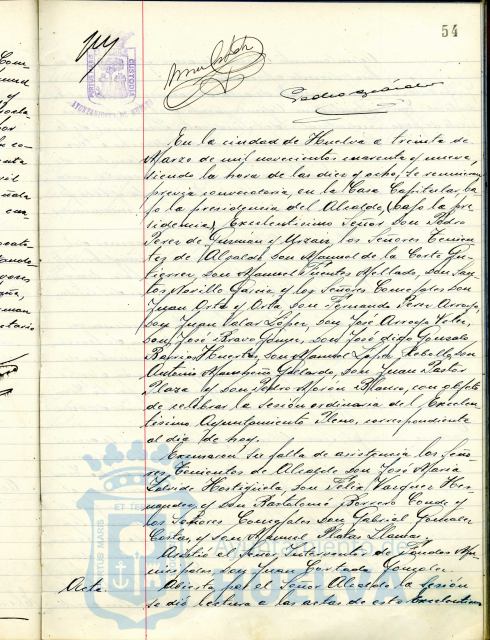 54
En la ciudad de Huelva a treinta de
Marzo de mil novecientos cuarenta y nueve,
siendo la hora de las diez y ocho, se reunieron
previa convocatoria, en la Casa Capitular, ba-
jo la presidencia del Alcalde, (bajo la pre-
sidencia) Excelentísimo Señor Don Pedro
Perez de Guzmán y Urzaiz, los Señores Tenien-
tes de Alcalde, Don Manuel de la Corte Gu-
tierrez, Don Manuel Fuentes Mellado, Don San-
tos Novillo García y los Señores Concejales Don
Juan Orta y Orta, Don Fernando Perez Arroyo,
Don Juan Vidal López, Don José Arroyo Velez,
Don José Bravo Gómez, Don José digo Gonzalo
Barrios Huertas, Don Manuel López Rebollo, Don
Antonio Mancheño Gallardo, Don Juan Pastor
Plaza y Don Pedro Morón Blanco, con objeto
de celebrar la sesión ordinaria del Excelen-
tísimo Ayuntamiento Pleno, correspondiente
al día de hoy.
Excusaron su falta de asistencia los Seño-
res Tenientes de Alcalde Don José María
Don Félix Vázquez
y Don Bartolomé Borrero Conde y
los Señores Concejales Don Gabriel Gonzalez
y Don Manuel Platas Llamas.
Asistió el Señor Interventor de Fondos Mu-
nicipales Don Juan Gonzalez.
Acta. Abierta por el Señor Alcalde la Sesión
se dió lectura a las actas de este Excelentísimo
Ayuntamiento de
HUELVA